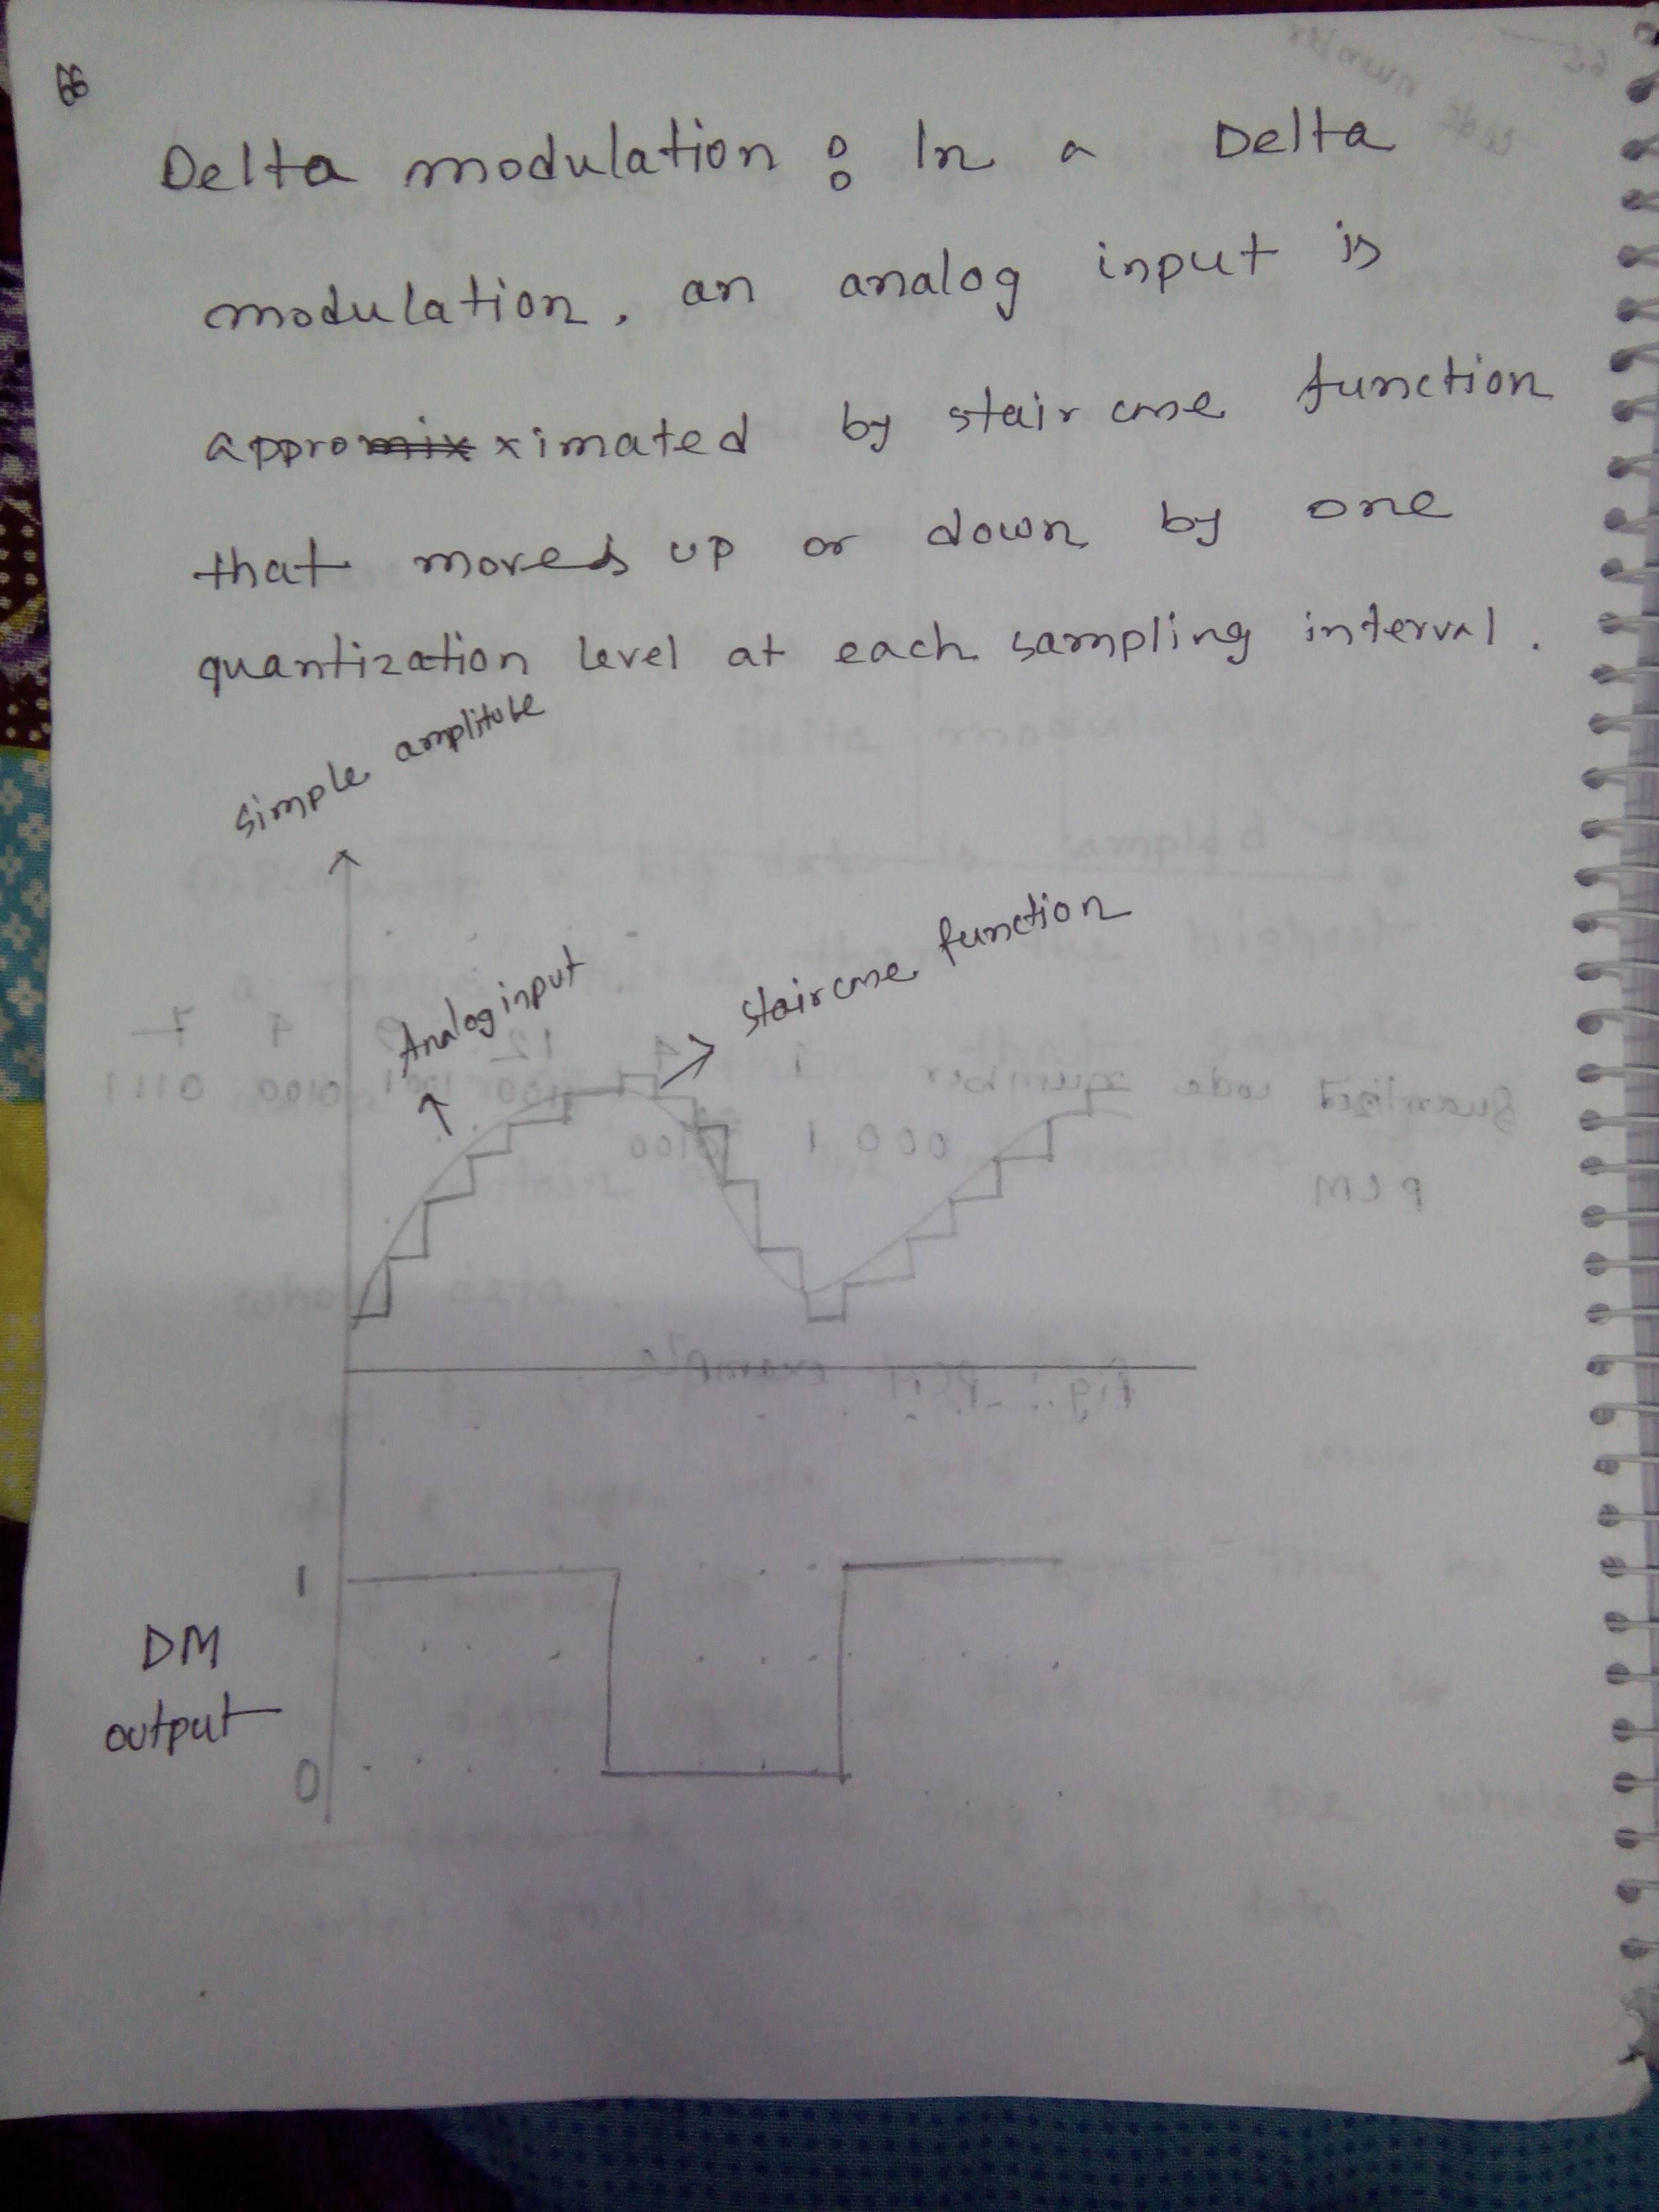 66
Delta modulation : In a Delta
modulation, an analog input is
approximated by staircase function
that moves up or down by one
quantization level at each sampling interval.
Simple amplitude
Analog input
staircase function
1
DM
output
0